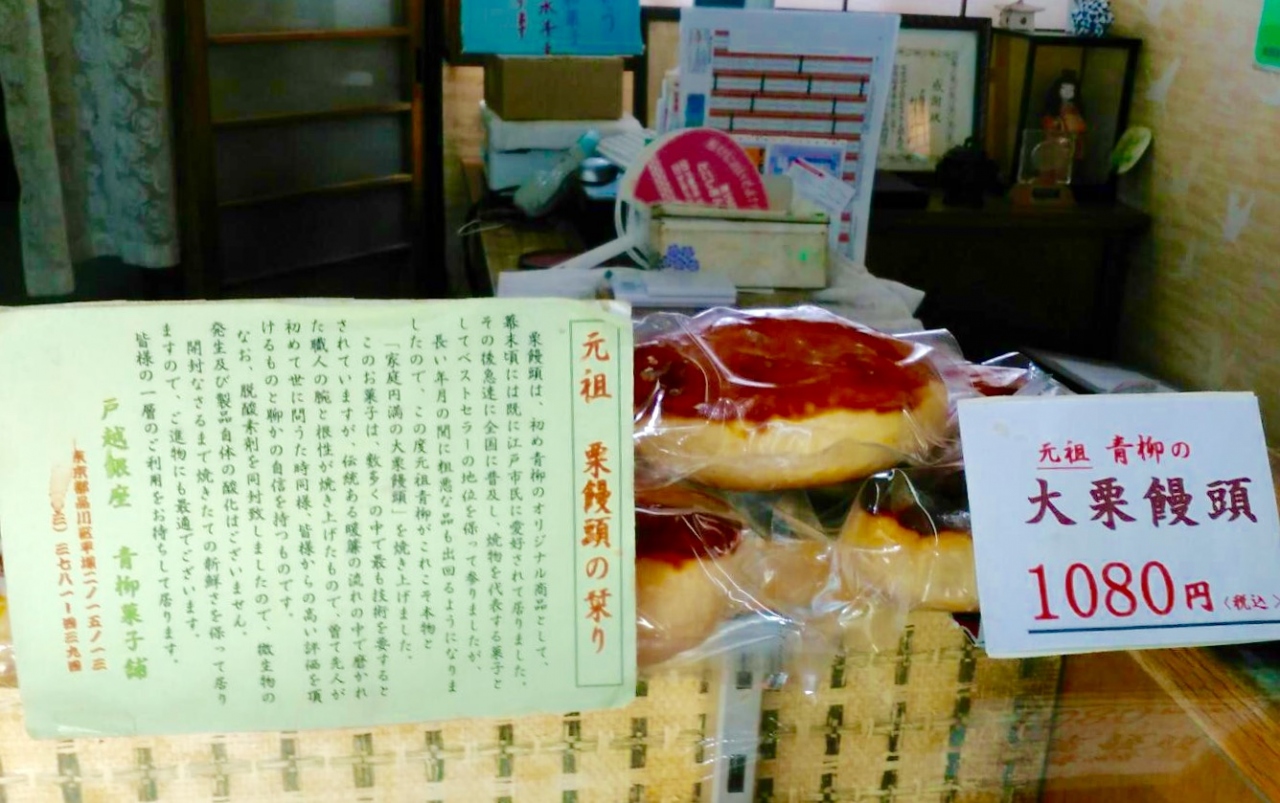 元祖 栗饅頭の栞り
栗饅頭は、初め青柳のオリジナル商品として、
幕末頃には既に江戸市民に愛好されて居りました。
その後急速に全国に普及し、焼物を代表する菓子と
してベストセラーの地位を保って参りましたが、
長い年月の間に粗悪な品も出回るようになりま
したので、この度元祖青柳がこれこそ本物と
「家庭円満の大栗饅頭」を焼き上げました。
このお菓子は、数多くの中で最も技術を要すると
されていますが、伝統ある暖簾の流れの中で磨かれ
た職人の腕と根性が焼き上げたもので、曽て先人が
初めて世に問うた時同様、皆様からの高い評価を頂
けるものと聊かの自信を持つものです。
なお、脱酸素剤を同封致しましたので、微生物の
発生及び製品自体の酸化はございません。
開封なさるまで焼きたての新鮮さを保って居り
ますので、ご進物にも最適でございます。
皆様の一層のご利用をお待ちして居ります。
戸越銀座 青柳菓子舗
東京都品川区平塚二ノ一五ノ一三
(〇三)三七八一ー四三九四
元祖 青柳の
大栗饅頭
1080円(税込)
感謝状